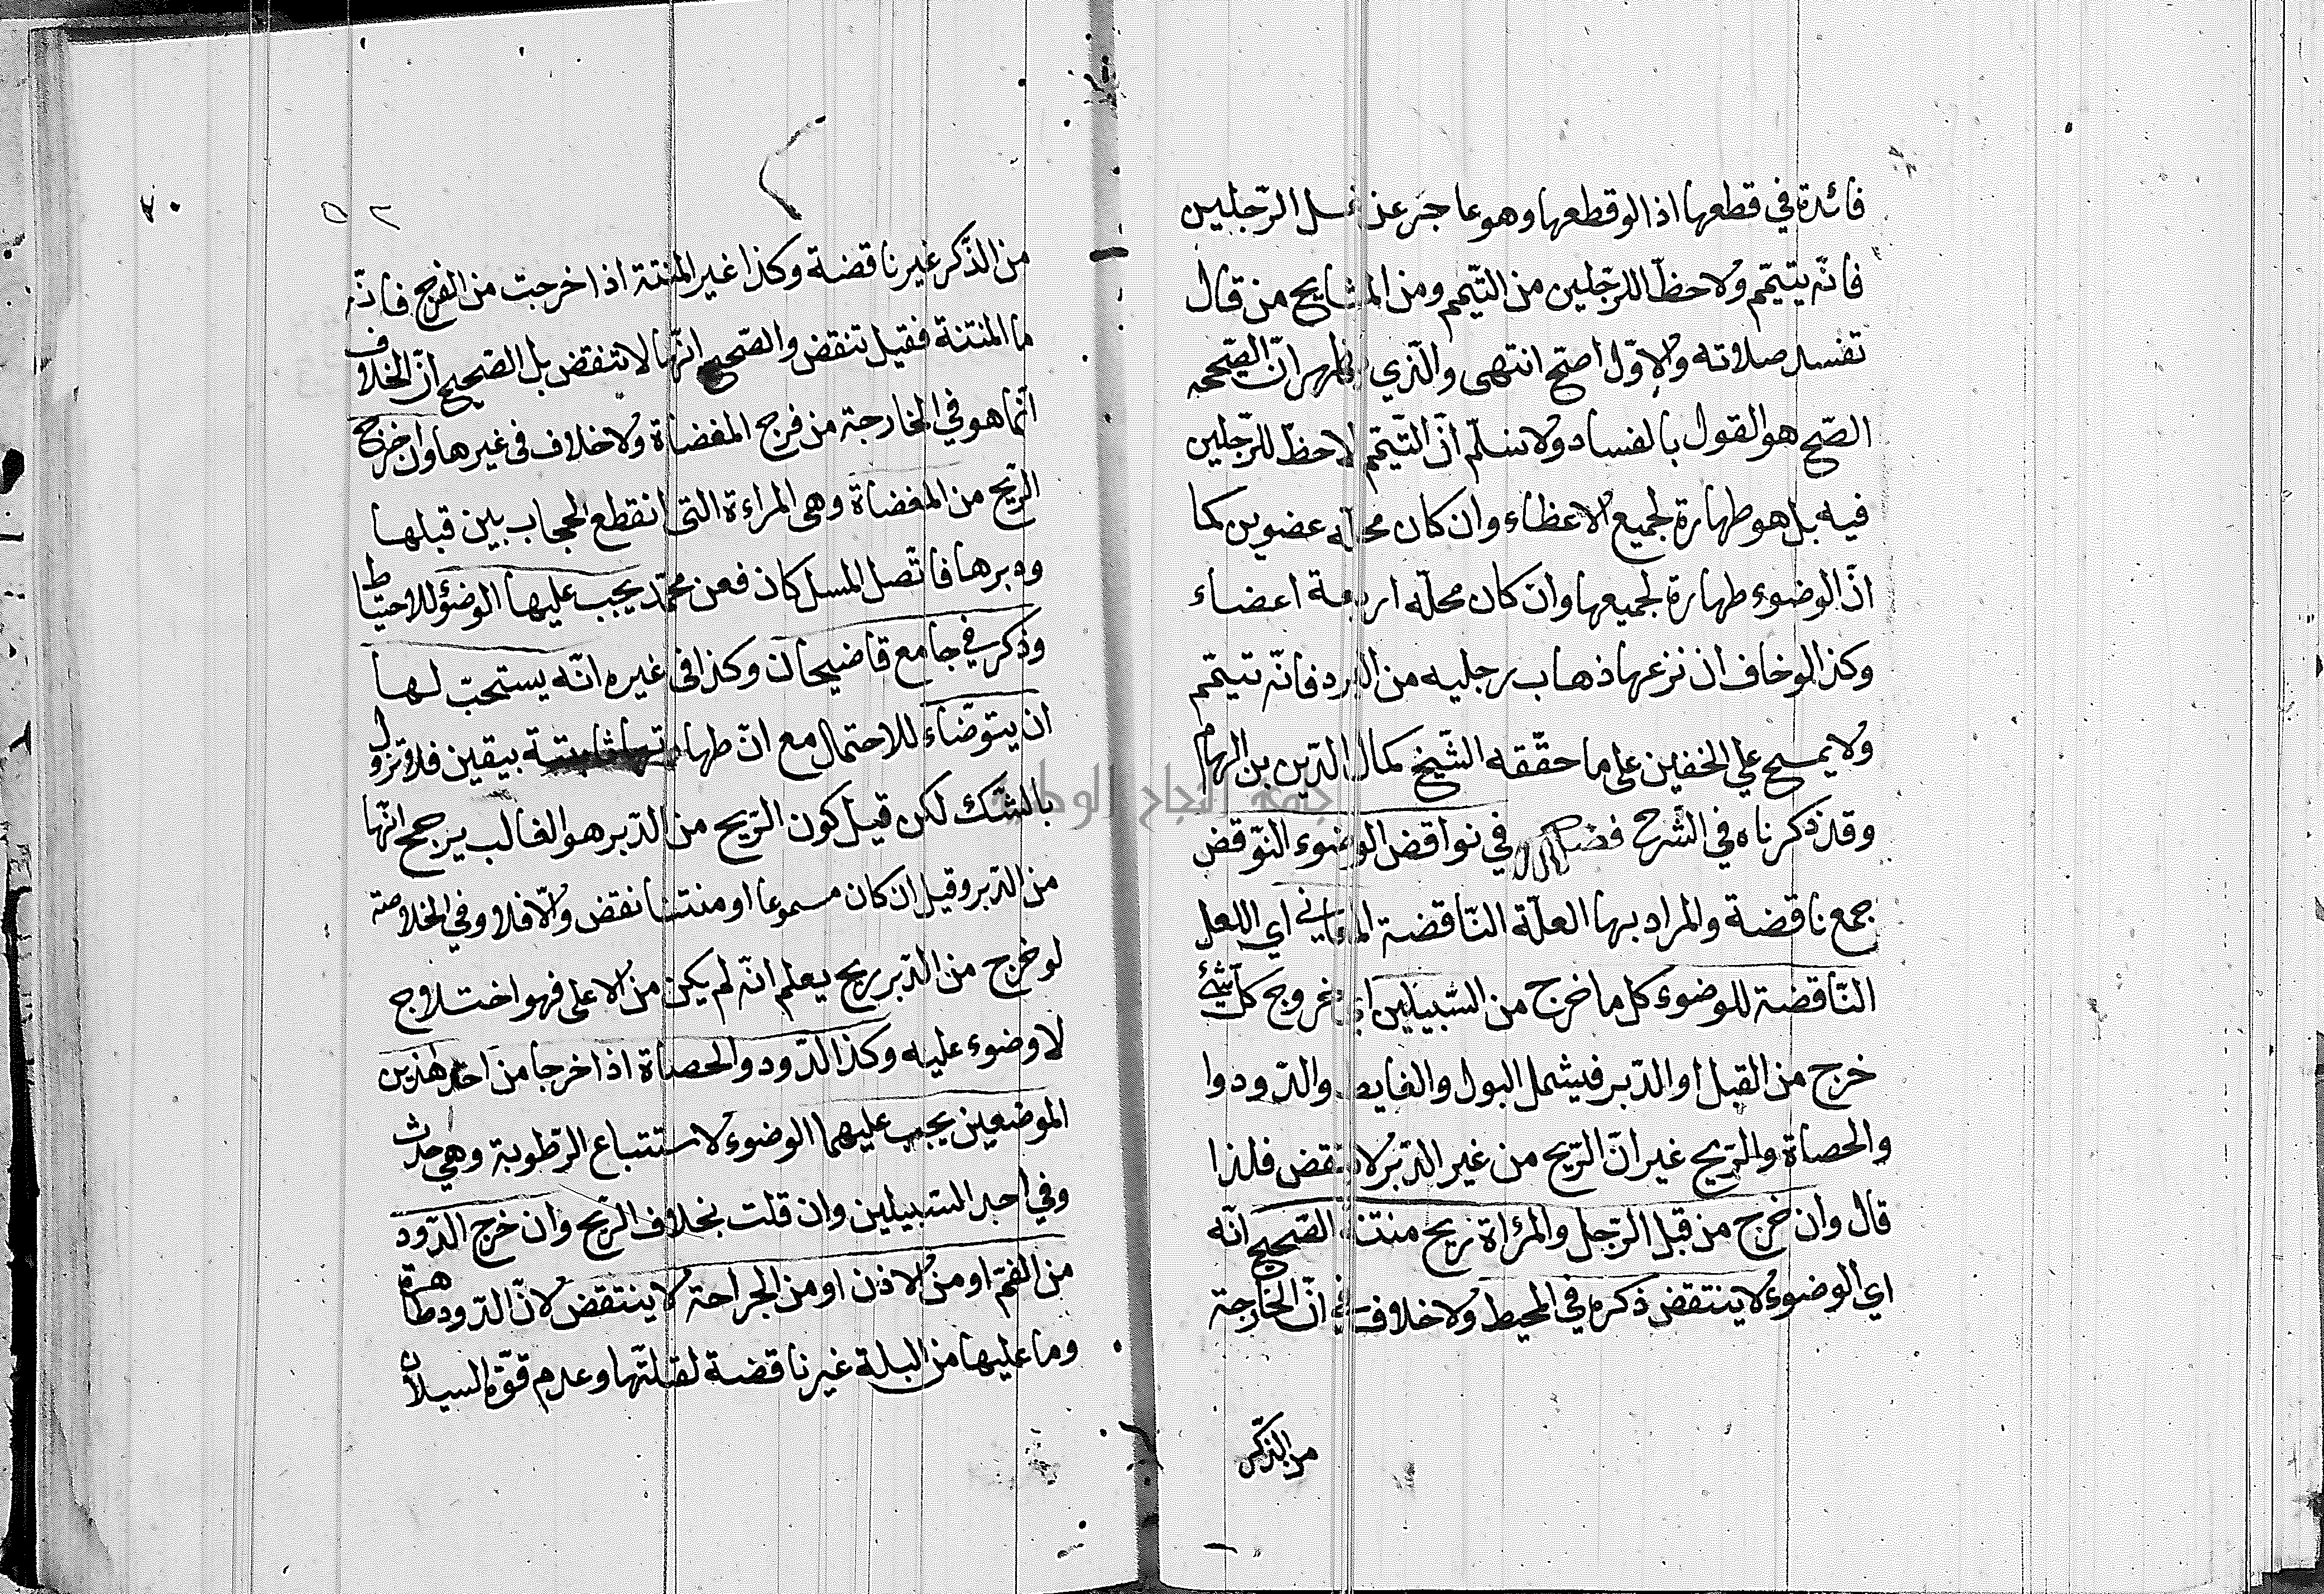 فائدة في قطعها اذ الو قطعها وهو عاجز عن غسل الرّجلين
فانّه يتيمّم ولاحظّ للرّجلين من التّيمم ومن المشايخ من قال
تفسد صلاته والاوّل اصحّ انتهى والّذي يظهر انّ الصّححه
الصّح هو القول بالفساد ولا نسلّم انّ التّيتمّم لاحظّ للرّجلين
فيه بل هو طهارة لجميع الاعظاء وان كان محلّه عضوين كما
انّ الوضوء طهارة لجميعها وان كان محلّه اربعة اعضاء
وكذا لو خاف ان نزعها ذهاب رجليه من البرد فانّه تتيمّم
ولا يمسح علي الخفين على ما حقّقه الشّيخ كمال الدّين بن الهام
وقد ذكرناه في الشّرح فصل في نواقض الوضوء النّوقض
جمع ناقضة والمراد بها العلّة النّاقضة المعاني اي اللعل
النّاقضة للوضوء كل ما خرج من السّبيلين اي خروج كلّ شيّ
خرج من القبل او الدّبر فيشمل البول والغايط والدّود وا
والحصاة والرّيح غير انّ الرّيح من غير الدّبر لا ينتقض فلذا
قال وان خرج من قبل الرّجل والمرُاة ريح منتنة الصّحيح انّه
اي الوضوء لا ينتقض ذكره في المحيط ولا خلاف في انّ الخارجة
من الذّكر
٧٠
٥٢
من الذّكر غير ناقضة وكذا غير المنتنة اذا خرجت من الفرج فانّه
ما المنتنة فقيل تنقض والصّحيح انّها لا تنقض بل الصّحيح انّ الخلاف
انّما هو في الخارجة من فرج المفضاة ولا خلاف في غيرها وان خرج
الرّيح من المفضاة وهي المراءة التى انقطع الحجاب بين قبلها
ودبرها فاتّصل المسلكان فعن محمّد يجب عليها الوضؤ للاحتياط
وذكر في جامع قاضيحان وكذا في غيره انّه يستحبّ لها
ان يتوضّاء للاحتمال مع انّ طهارتها ثابتة بيقين فلا تزول
بالشّك لكن قيل كون الرّيح من الدّبر هو الغالب يرجح انّها
من الدّبر وقيل ان كان مسموعا او منتنا نقض والّا فلا وفي الخلاصة
لو خرج من الدّبر ريح يعلم انّه لم يكن من الاعلى فهو اختلاج
لا وضوء عليه وكذا الدّود والحصاة اذا خرجا من احد هذين
الموضعين يجب عليهما الوضوء لاستتباع الرّطوبة وهي حدث
وفي احد السّبيلين وان قلت بخلاف الرّيح وان خرج الدّود
من الفمّ او من الاذن او من الجراحة لا ينتقض لانّ الدّود طاهرة
وما عليها من البلة غير ناقضة لقلّتها وعدم قوّة السيلان
جامعة النجاح الوطنية